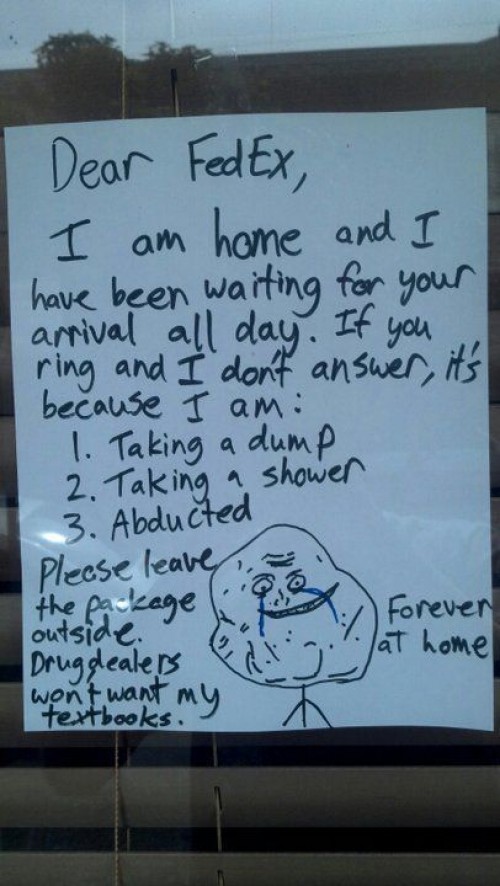 Dear FedEx,
I am home and I
have been waiting for your
arrival all day. If you
ring and I don't answer, it's
because I am:
1. Taking a dump
2. Taking a shower
3. Abducted
Please leave
the package
outside.
Drug dealers
won't want my
textbooks.
Forever
at home